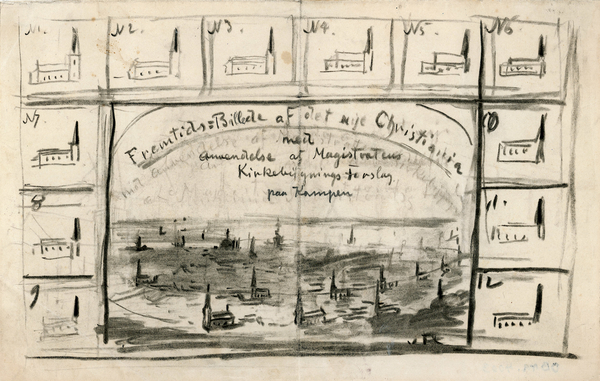 N1. N2. N3. N4. N5. N6
Fremtids=Billede af det nye Christiania
med
anvendelse af Magistratens
Kirkebygningsforslag
paa Kampen
N7
8
9
10
11.
12